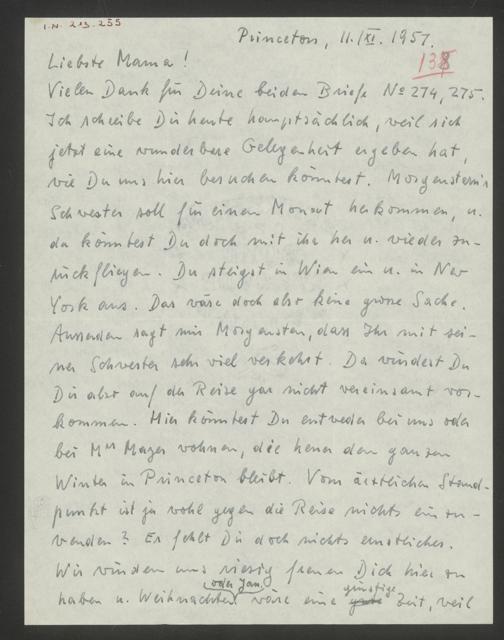 I.N. 213.255
Princeton, 11./XI. 1957.
138
Liebste Mama!
Vielen Dank für Deine beiden Briefe No 274, 275.
Ich schreibe Dir heute hauptsächlich, weil sich
jetzt eine wunderbare Gelegenheit ergeben hat,
wie Du uns hier besuchen könntest. Morgenstern's
Schwester soll für einen Monat herkommen, u.
da könntest Du doch mit ihr her u. wieder zu-
rückfliegen. Du steigst in Wien ein u. in New
York aus. Das wäre doch also keine grosse Sache.
Ausserdem sagt mir Morgenstern, dass Ihr mit sei-
ner Schwester sehr viel verkehrt. Da würdest Du
Dir also auf der Reise gar nicht vereinsamt vor-
kommen. Hier könntest Du entweder bei uns oder
bei Mrs Mayer wohnen, die heuer den ganzen
Winter in Princeton bleibt. Vom ärztlichen Stand-
punkt ist ja wohl gegen die Reise nichts einzu-
wenden? Es fehlt Dir doch nichts ernstliches.
Wir würden uns riesig freuen Dich hier zu
haben u. Weihnachten oder Jan. wäre eine günstige Zeit, weil